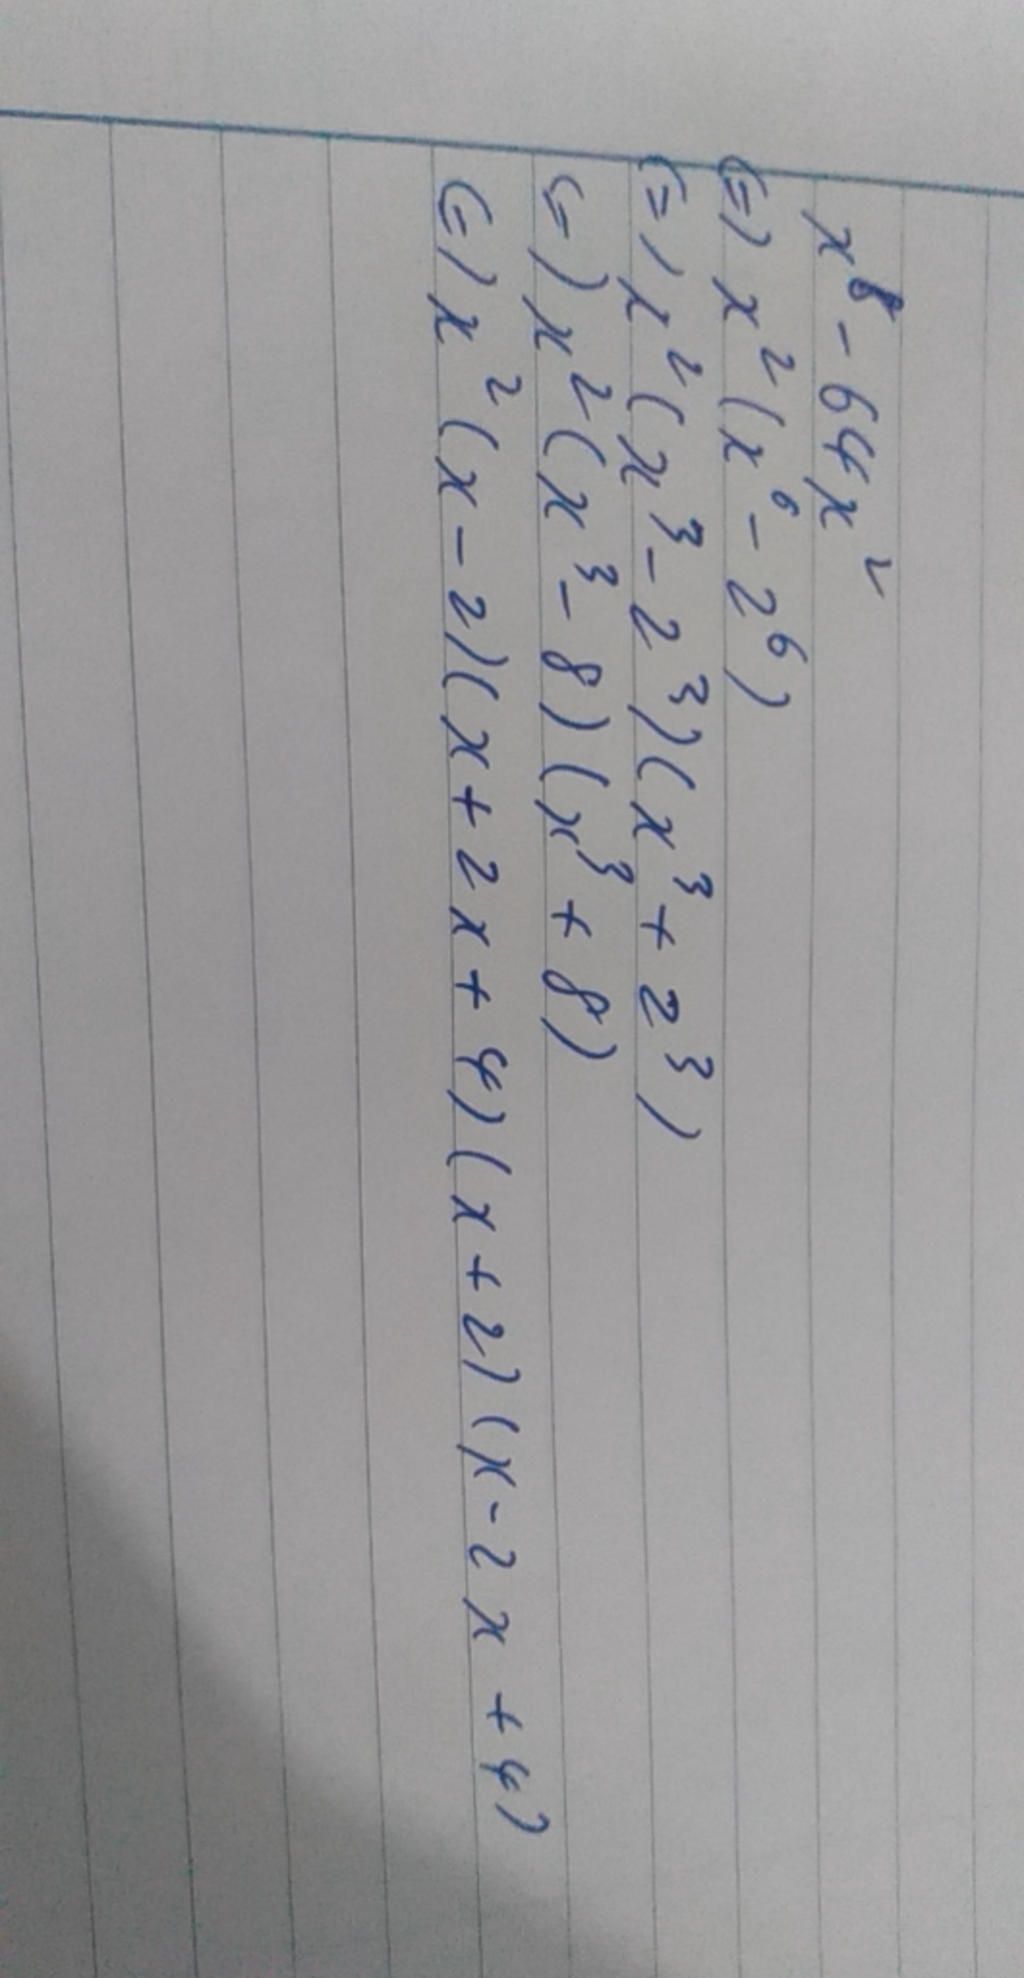 x⁸ - 64x²
(=) x²(x⁶ - 2⁶)
(=) x²(x³ - 2³)(x³ + 2³)
(=) x²(x³ - 8)(x³ + 8)
(=) x²(x - 2)(x + 2x + 4)(x + 2)(x - 2x + 4)